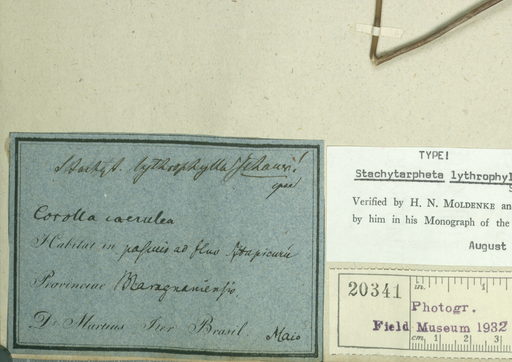 Stachyt. lythrophylla Schauer!
Corolla caerulea
Habitat in pascuis ad fluv. Itapicurú
Provinciae Maragnaniensis
Dr. Martius Iter Brasil. Maio
TYPE!
Stachytarpheta lythrophyl
Verified by H. N. MOLDENKE an
by him in his Monograph of the
August
20341
in.
1
Photogr.
Field Museum 1932
cm
1 2 3